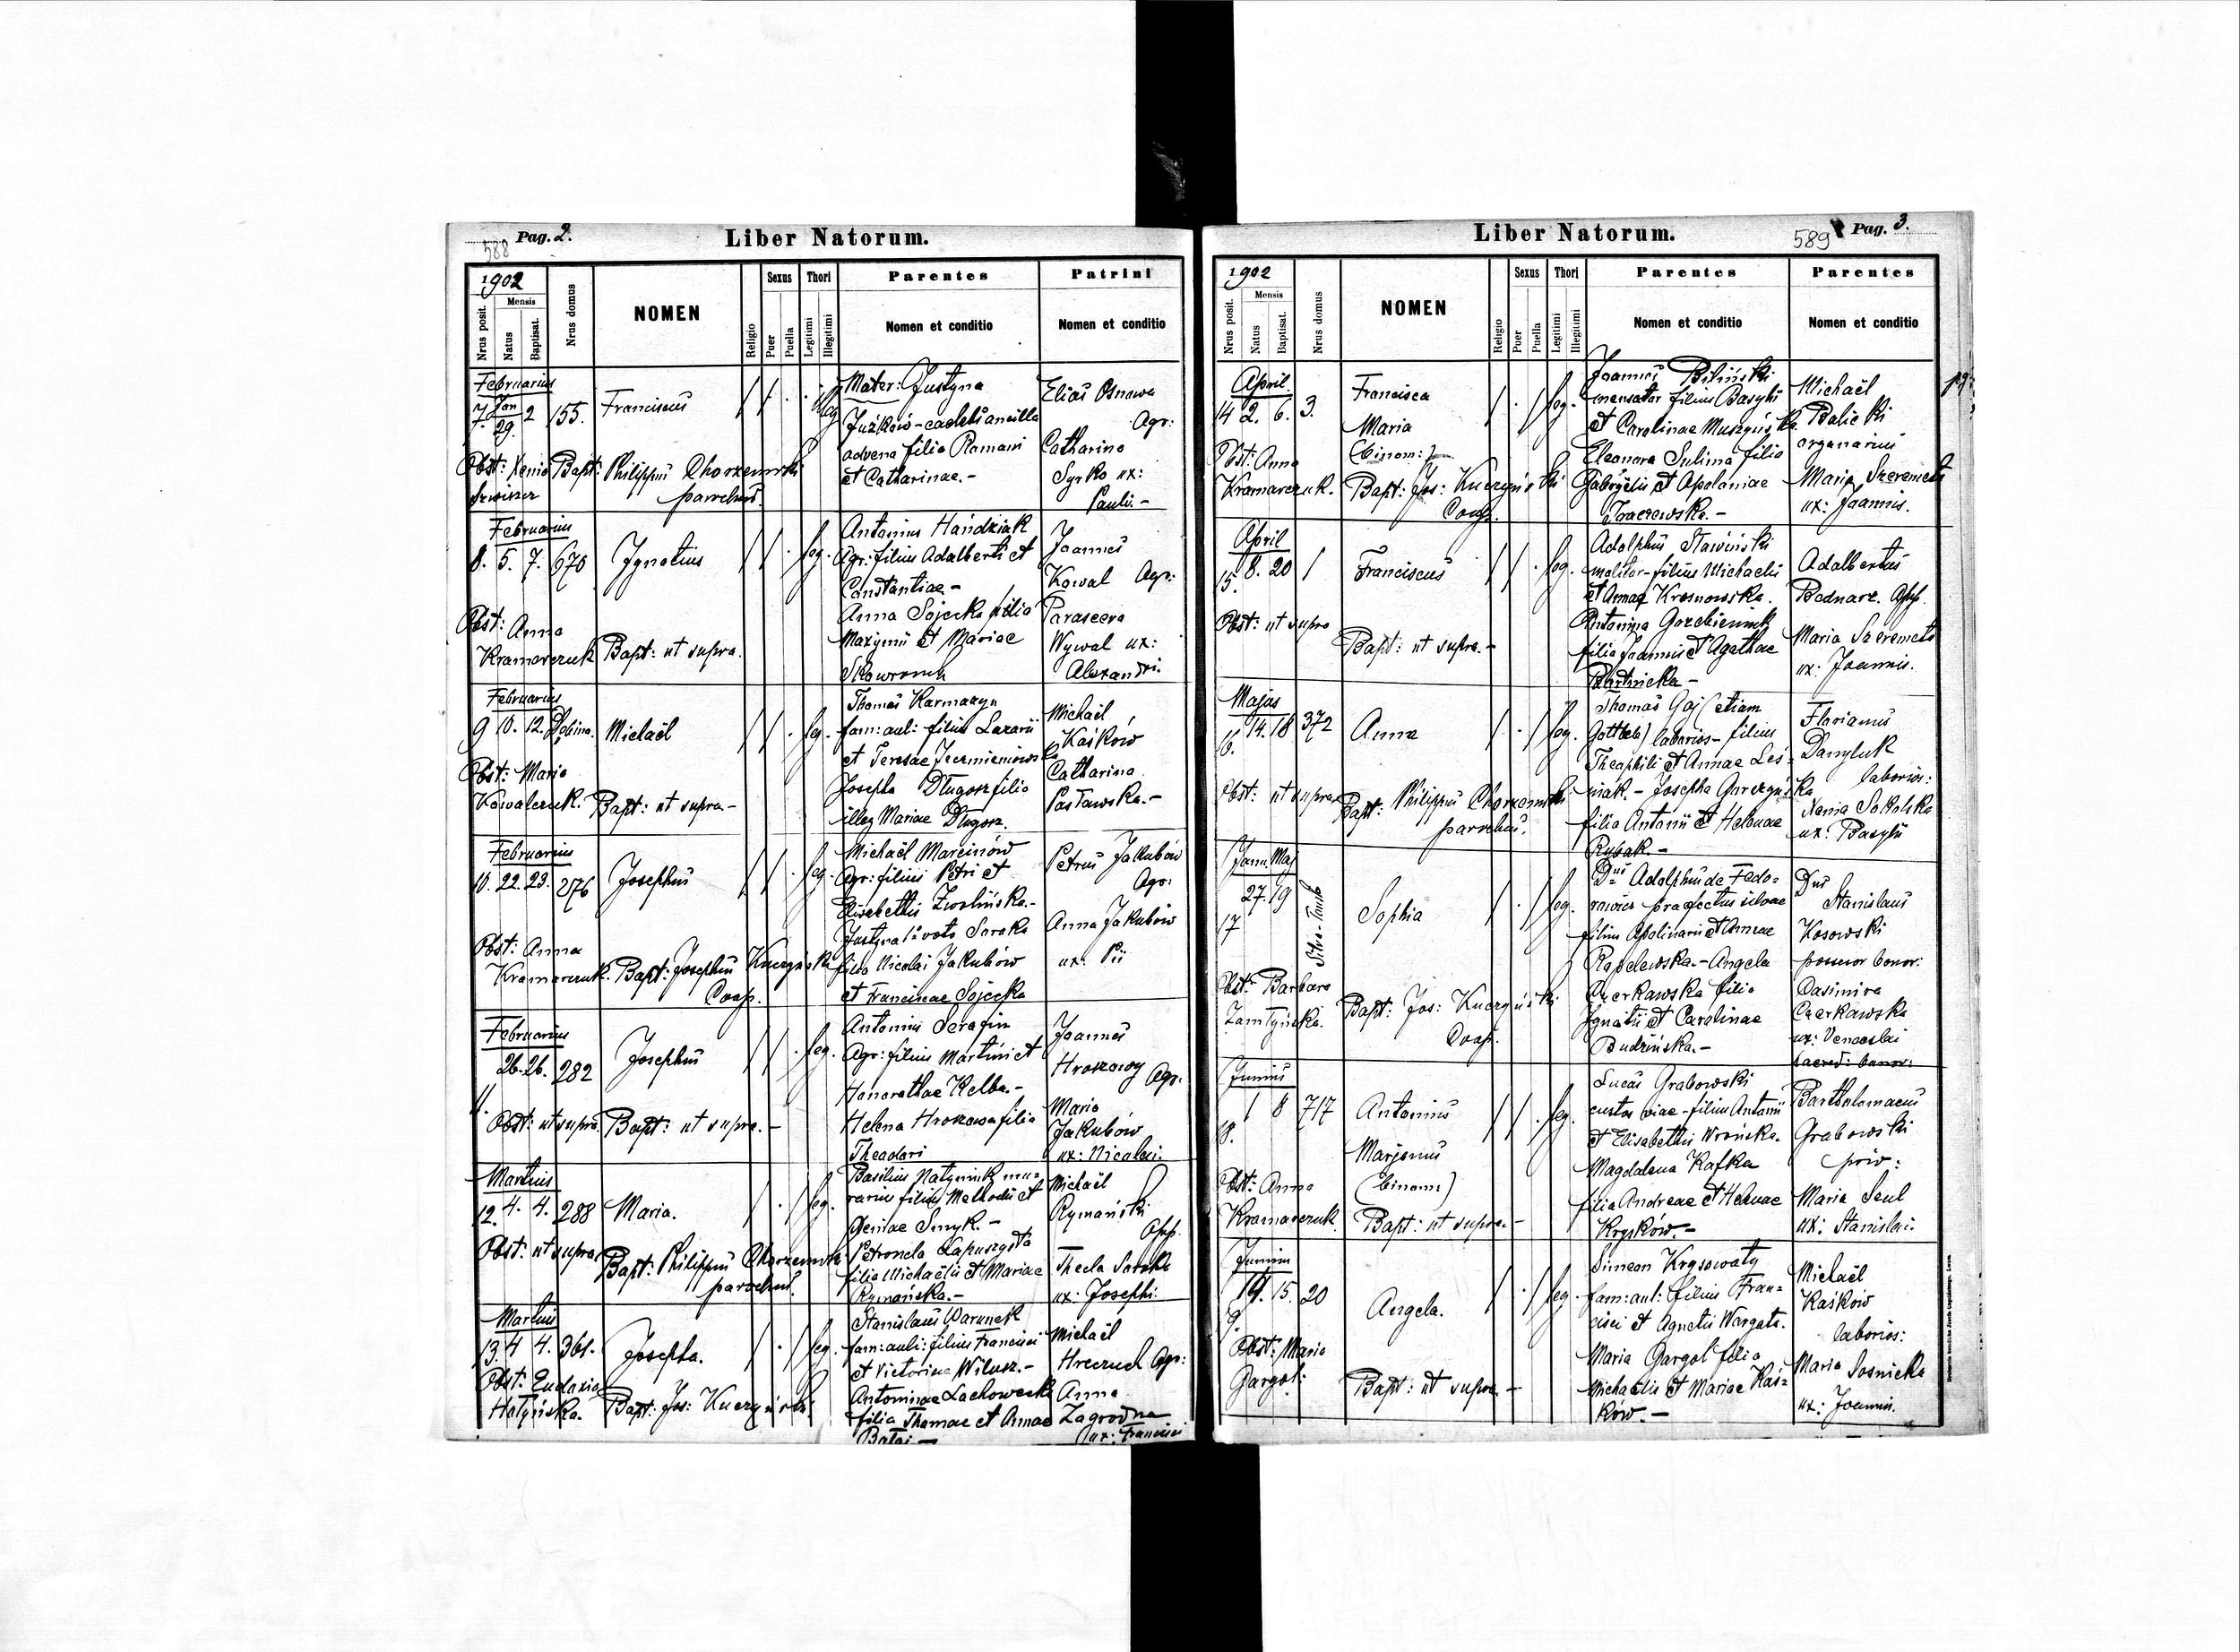 588 Pag. 2. Liber Natorum.
1902
Mensis
Nrus posit.
Natus
Baptisat.
Nrus domus
NOMEN
Religio
Sexus
Puer
Puella
Thori
Legitimi
Illegitimi
Parentes
Nomen et conditio
Patrini
Nomen et conditio
Februarius
7. Jan 29. 2 155. Franciscus
Obst: Xenia
Bapt: Philippus Chorzemski
parochus.
Mater: Justyna
Juzków - caelebs ancilla
advena filia Romani
et Catharinae. -
Elias Osnowa
Agr:
Catharina
Syrko ux:
Pauli. -
Februarius
8. 5. 7. 670 Ignatius leg.
Obst: Anna
Kramarczuk Bapt: ut supra.
Antonius Handziak
Agr: filius Adalberti et
Constantiae -
Anna Sojecka filia
Maximi et Mariae
Skowronek
Joannes
Kowal Agr:
Parasceva
Wywal ux:
Alexandri.
Februarius
9 10. 12. Michaël leg.
Obst: Maria
Kowalczuk. Bapt: ut supra -
Thomas Karmazyn
fam: aul: filius Lazarii
et Teresae
Josepha Długosz filia
illeg Mariae Długosz.
Michaël
Kaśków
Catharina
Pasławska. -
Februarius
10. 22. 23. 276 Josephus leg.
Obst: Anna
Kramarczuk. Bapt: Josephus Kuczyński
Coop.
Michaël Marcinów
Agr: filius Petri et
Elisabethis Zwolińska. -
Justyna 1º voto Saraka
filia Nicolai Jakubów
et Franciscae Sojecka
Petrus Jakubów
Agr:
Anna Jakubów
ux: Pii
Februarius
11. 26. 26. 282 Josephus leg.
Obst: ut supra. Bapt: ut supra. -
Antonius Serafin
Agr: filius Martini et
Honorathae Kelba. -
Helena Hrozowa filia
Theodori
Joannes
Hrozowy Agr:
Maria
Jakubów
ux: Nicolai.
Martius
12. 4. 4. 288 Maria. leg.
Obst: ut supra
Bapt: Philippus Chorzemski
parochus.
Basilius Hatynnik mu=
rarius filius Methodii et
Xeniae Smyk. -
Petronela Łapuszysta
filia Michaëlis et Mariae
Rymańska. -
Michaël
Rymański
Opp.
Thecla Saraka
ux: Josephi.
Martius
13. 4 4. 361. Josepha. leg.
Obst: Eudoxia
Hatyńska. Bapt: Jos: Kuczyński
Stanislaus Warunek
fam: auli: filius Francisci
et Victoriae Wilusz. -
Antoninae Lachowecka
filia Thomae et Annae
Bataj -
Michaël
Hreczuch Agr:
Anna
Zagrodna
ux: Francisci
Liber Natorum. 589 Pag. 3.
1902
Mensis
Nrus posit.
Natus
Baptisat.
Nrus domus
NOMEN
Religio
Sexus
Puer
Puella
Thori
Legitimi
Illegitimi
Parentes
Nomen et conditio
Parentes
Nomen et conditio
April.
14 2. 6. 3. Francisca
Maria
(binom:)
leg.
Obst: Anna
Kramarczuk. Bapt: Jos: Kuczyński
Coop.
Joannes Biliński
mensator filius Basylii
et Carolinae Muszyńska
Eleonora Sulima filia
Gabryelis et Apoloniae
Michaël
Balicki
organarius
Maria Szeremeta
ux: Joannis.
April
15. 8. 20 1 Franciscus leg.
Obst: ut supra
Bapt: ut supra. -
Adolphus Stawiński
molitor - filius Michaelis
et Annae Krosnowska.
Antonina
filia Joannis et Agathae
Bartnicka -
Adalbertus
Bednarz. Opp.
Maria Szeremeta
ux: Joannis.
Majus
16. 14. 18 372 Anna leg.
Obst: ut supra
Bapt: Philippus Chorzemski
parochus.
Thomas Gaj (etiam
Gottleb) laborios - filius
Theophili et Annae Leś=
niak. - Josepha Garczyńska
filia Antonii et Helenae
Rybak. -
Florianus
Danyluk
laborios:
Xenia Sokolska
ux: Basylii
Maj
17 27. 19 Sophia leg.
Obst: Barbara
Zamłyńska. Bapt: Jos: Kuczyński
Coop.
Dnus Adolphus de Fedo=
rowicz praefectus silvae
filius Apolinarii et Annae
Rapelewska. - Angela
Czerkawska filia
Ignatii et Carolinae
Budzińska. -
Dnus
Stanislaus
Kosowski
possesor bonor:
Casimira
Czerkawska
ux: Venceslai
Junius
18. 1 8 717 Antonius
Marjanus
(binom:)
leg.
Obst: Anna
Kramarczuk. Bapt: ut supra. -
Lucas Grabowski
custos viae - filius Antonii
et Elisabethis Wrońska.
Magdalena Kafka
filia Andreae et Helenae
Krysków. -
Bartholomaeus
Grabowski
priv:
Maria Seul
ux: Stanislai.
Junius
19. 15. 20 Angela. leg.
9.
Obst: Maria
Gargol. Bapt: ut supra. -
Simeon Krysowaty
fam: aul: filius Fran=
cisci et Agnetis Wargata.
Maria Gargol filia
Michaëlis et Mariae Kaś=
ków. -
Michaël
Kaśków
laborios:
Maria Sosnicka
ux: Joannis.